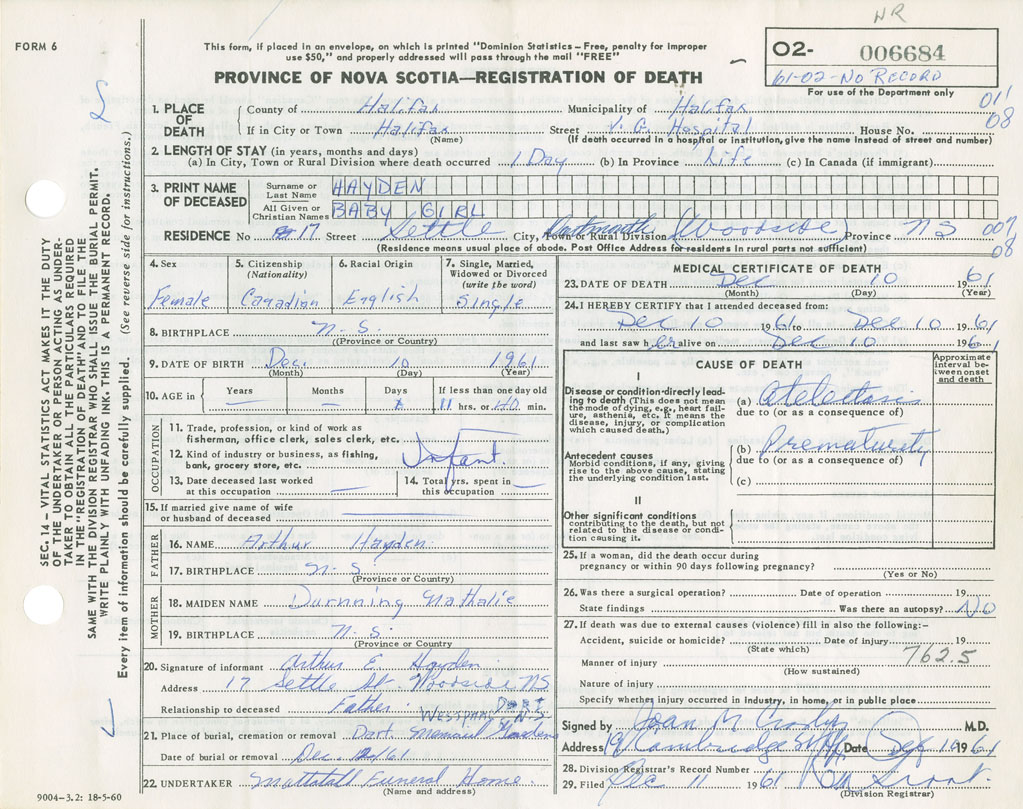 NR
FORM 6
This form, if placed in an envelope, on which is printed "Dominion Statistics – Free, penalty for improper
use $50," and properly addressed will pass through the mail "FREE"
02- 006684
61-02-No RECORD
For use of the Department only
PROVINCE OF NOVA SCOTIA—REGISTRATION OF DEATH
011
08
1. PLACE OF DEATH
County of Halifax Municipality of Halifax
If in City or Town Halifax Street V. G. Hospital House No.
(Name) (If death occurred in a hospital or institution, give the name instead of street and number)
2. LENGTH OF STAY (in years, months and days)
(a) In City, Town or Rural Division where death occurred 1 Day (b) In Province Life (c) In Canada (if immigrant)
3. PRINT NAME OF DECEASED
Surname or Last Name HAYDEN
All Given or Christian Names BABY GIRL
RESIDENCE No 17 Street Settle City, Town or Rural Division Dartmouth (Woodside) Province NS
(Residence means usual place of abode. Post Office Address for residents in rural parts not sufficient)
007
08
4. Sex Female
5. Citizenship (Nationality) Canadian
6. Racial Origin English
7. Single, Married, Widowed or Divorced (write the word) Single
8. BIRTHPLACE N. S.
(Province or Country)
9. DATE OF BIRTH Dec. 10 1961
(Month) (Day) (Year)
10. AGE in Years — Months — Days If less than one day old 11 hrs. or 40 min.
OCCUPATION
11. Trade, profession, or kind of work as
fisherman, office clerk, sales clerk, etc.
12. Kind of industry or business, as fishing,
bank, grocery store, etc.
Infant
13. Date deceased last worked
at this occupation —
14. Total yrs. spent in
this occupation —
15. If married give name of wife
or husband of deceased —
FATHER
16. NAME Arthur Hayden
17. BIRTHPLACE N. S.
(Province or Country)
MOTHER
18. MAIDEN NAME Durnning Nathalie
19. BIRTHPLACE N. S.
(Province or Country
20. Signature of informant Arthur E. Hayden
Address 17 Settle St. Woodside NS
Relationship to deceased Father
WESTPHAL N.S
21. Place of burial, cremation or removal Dart. Memorial Gardens
Date of burial or removal Dec. 12/61
22. UNDERTAKER Mattatall Funeral Home.
(Name and address)
9004-3.2: 18-5-60
MEDICAL CERTIFICATE OF DEATH
23. DATE OF DEATH Dec 10 1961
(Month) (Day) (Year)
24. I HEREBY CERTIFY that I attended deceased from:
Dec 10 1961 to Dec 10 1961
and last saw her alive on Dec 10 1961
CAUSE OF DEATH
Approximate interval between onset and death
I
Disease or condition directly leading to death (This does not mean the mode of dying, e.g., heart failure, asthenia, etc. It means the disease, injury, or complication which caused death.)
(a) Atelectasis
due to (or as a consequence of)
Antecedent causes
Morbid conditions, if any, giving rise to the above cause, stating the underlying condition last.
(b) Prematurity
due to (or as a consequence of)
(c)
II
Other significant conditions
contributing to the death, but not related to the disease or condition causing it.
25. If a woman, did the death occur during
pregnancy or within 90 days following pregnancy?
(Yes or No)
26. Was there a surgical operation? Date of operation 19
State findings Was there an autopsy? No
27. If death was due to external causes (violence) fill in also the following:–
Accident, suicide or homicide? Date of injury 19
(State which)
762.5
Manner of injury
(How sustained)
Nature of injury
Specify whether injury occurred in industry, in home, or in public place
Signed by Joan M M.D.
Address Cambridge St Date 1961
28. Division Registrar's Record Number
29. Filed Dec 11 1961
(Division Registrar)
SEC. 14 – VITAL STATISTICS ACT MAKES IT THE DUTY
OF THE UNDERTAKER OR PERSON ACTING AS UNDERTAKER
TO OBTAIN ALL THE PARTICULARS REQUIRED
IN THE "REGISTRATION OF DEATH" AND TO FILE THE
SAME WITH THE DIVISION REGISTRAR WHO SHALL ISSUE THE BURIAL PERMIT.
WRITE PLAINLY WITH UNFADING INK. THIS IS A PERMANENT RECORD.
Every item of information should be carefully supplied. (See reverse side for instructions.)